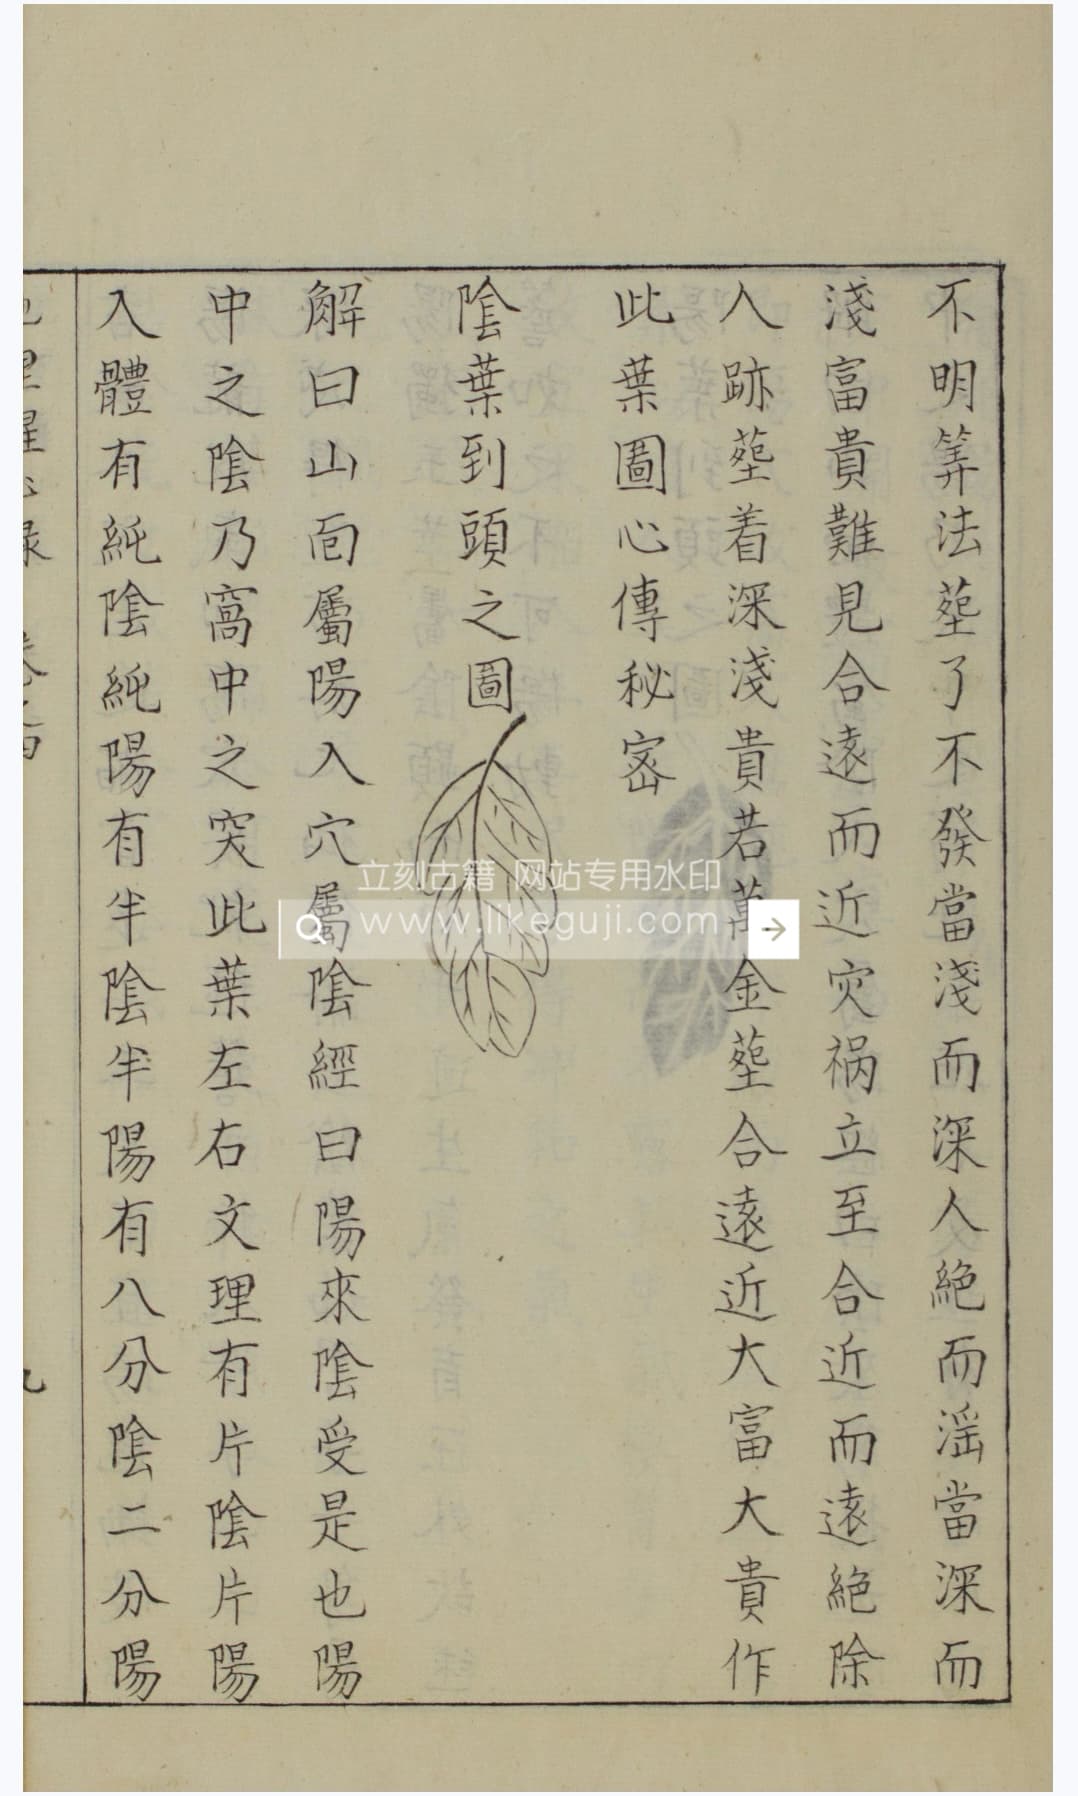 不明筭法塟了不發當淺而深人絶而滛當深而
淺富貴難見合遠而近灾禍立至合近而遠絶除
人跡塟着深淺貴若萬金塟合遠近大富大貴作
此葉圖心傳秘宻
陰葉到頭之圖
解曰山面屬陽入穴屬陰經曰陽來陰受是也陽
中之陰乃窩中之突此葉左右文理有片陰片陽
入體有純陰純陽有半陰半陽有八分陰二分陽
立刻古籍 网站专用水印
www.likeguji.com